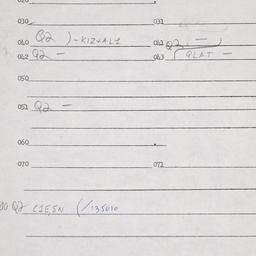 030 031
040 Q2 ) - KIZUAL1 041 Q2 —
042 Q2 — 043 QLAT —
050
051 Q2 —
060
070 071
Q2 C1E,5N (/135010